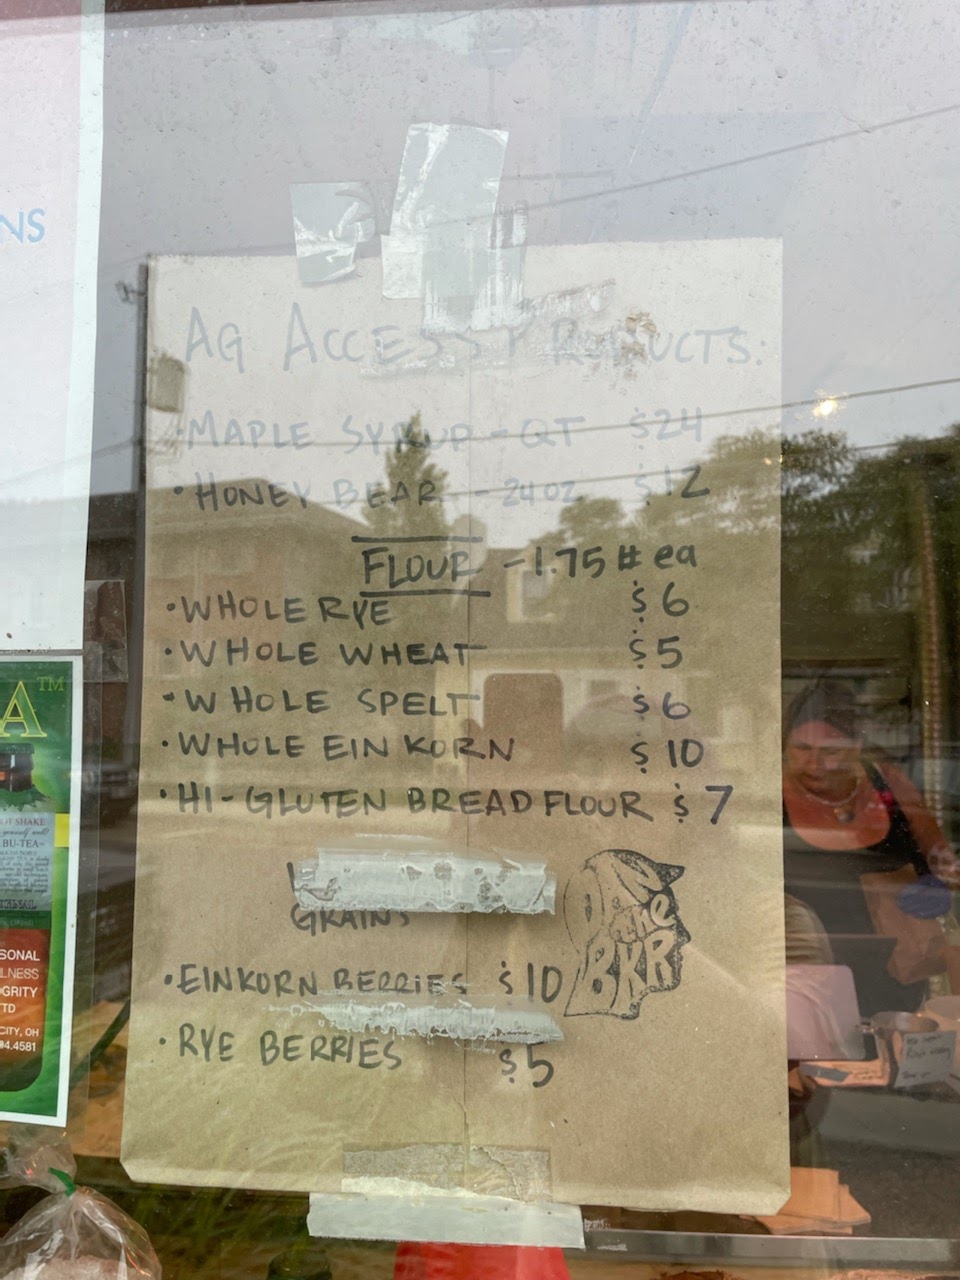 NS
AG ACCESS PRODUCTS:
MAPLE SYRUP - QT $24
• HONEY BEAR - 24 OZ $12
FLOUR - 1.75 # ea
• WHOLE RYE $6
• WHOLE WHEAT $5
• WHOLE SPELT $6
• WHOLE EINKORN $10
• HI-GLUTEN BREAD FLOUR $7
GRAINS
DAN the BKR
• EINKORN BERRIES $10
• RYE BERRIES $5
A™
BU-TEA
SONAL
LNESS
GRITY
TD
CITY, OH
4.4581